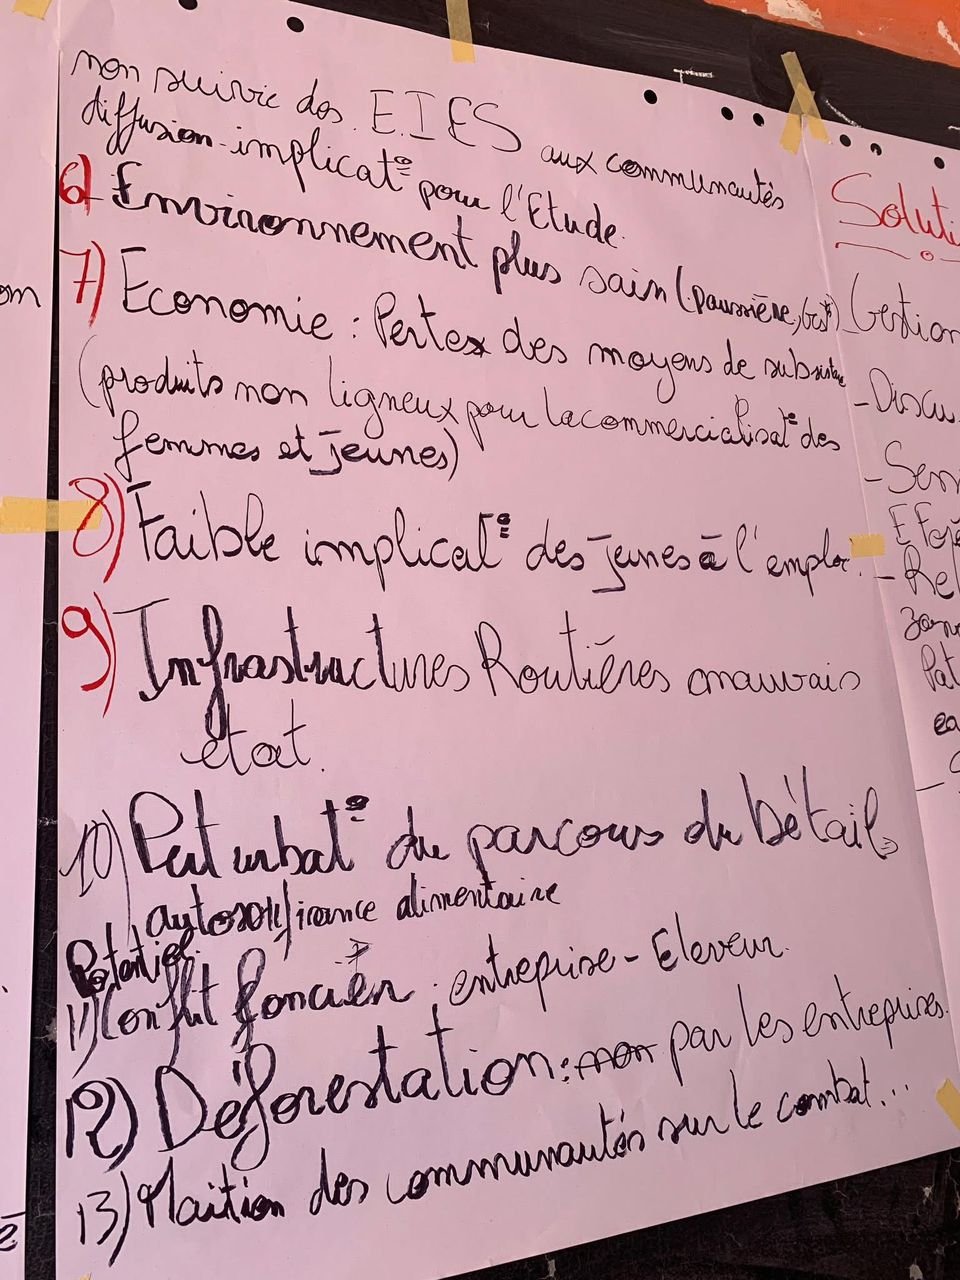 non suivie des E.I ES aux communautés
diffusion implicat° pour l'Etude.
6) Environnement plus sain (poussière,
7) Economie : Pertes des moyens de subsistance
(produits non ligneux pour la commercialisat° des
femmes et jeunes)
8) Faible implicat° des jeunes à l'emploi.
9) Infrastructures Routiéres mauvais
état.
10) Perturbat° du parcours du Bétail
autosuffisance alimentaire
Potentiel
11) Conflit foncier : entreprise - Eleveur.
12) Déforestation : par les entreprises.
13) des communautés sur le combat...
Soluti
Gestion
- Discu
- Sen
- Rel
zon
Pat
ea
om